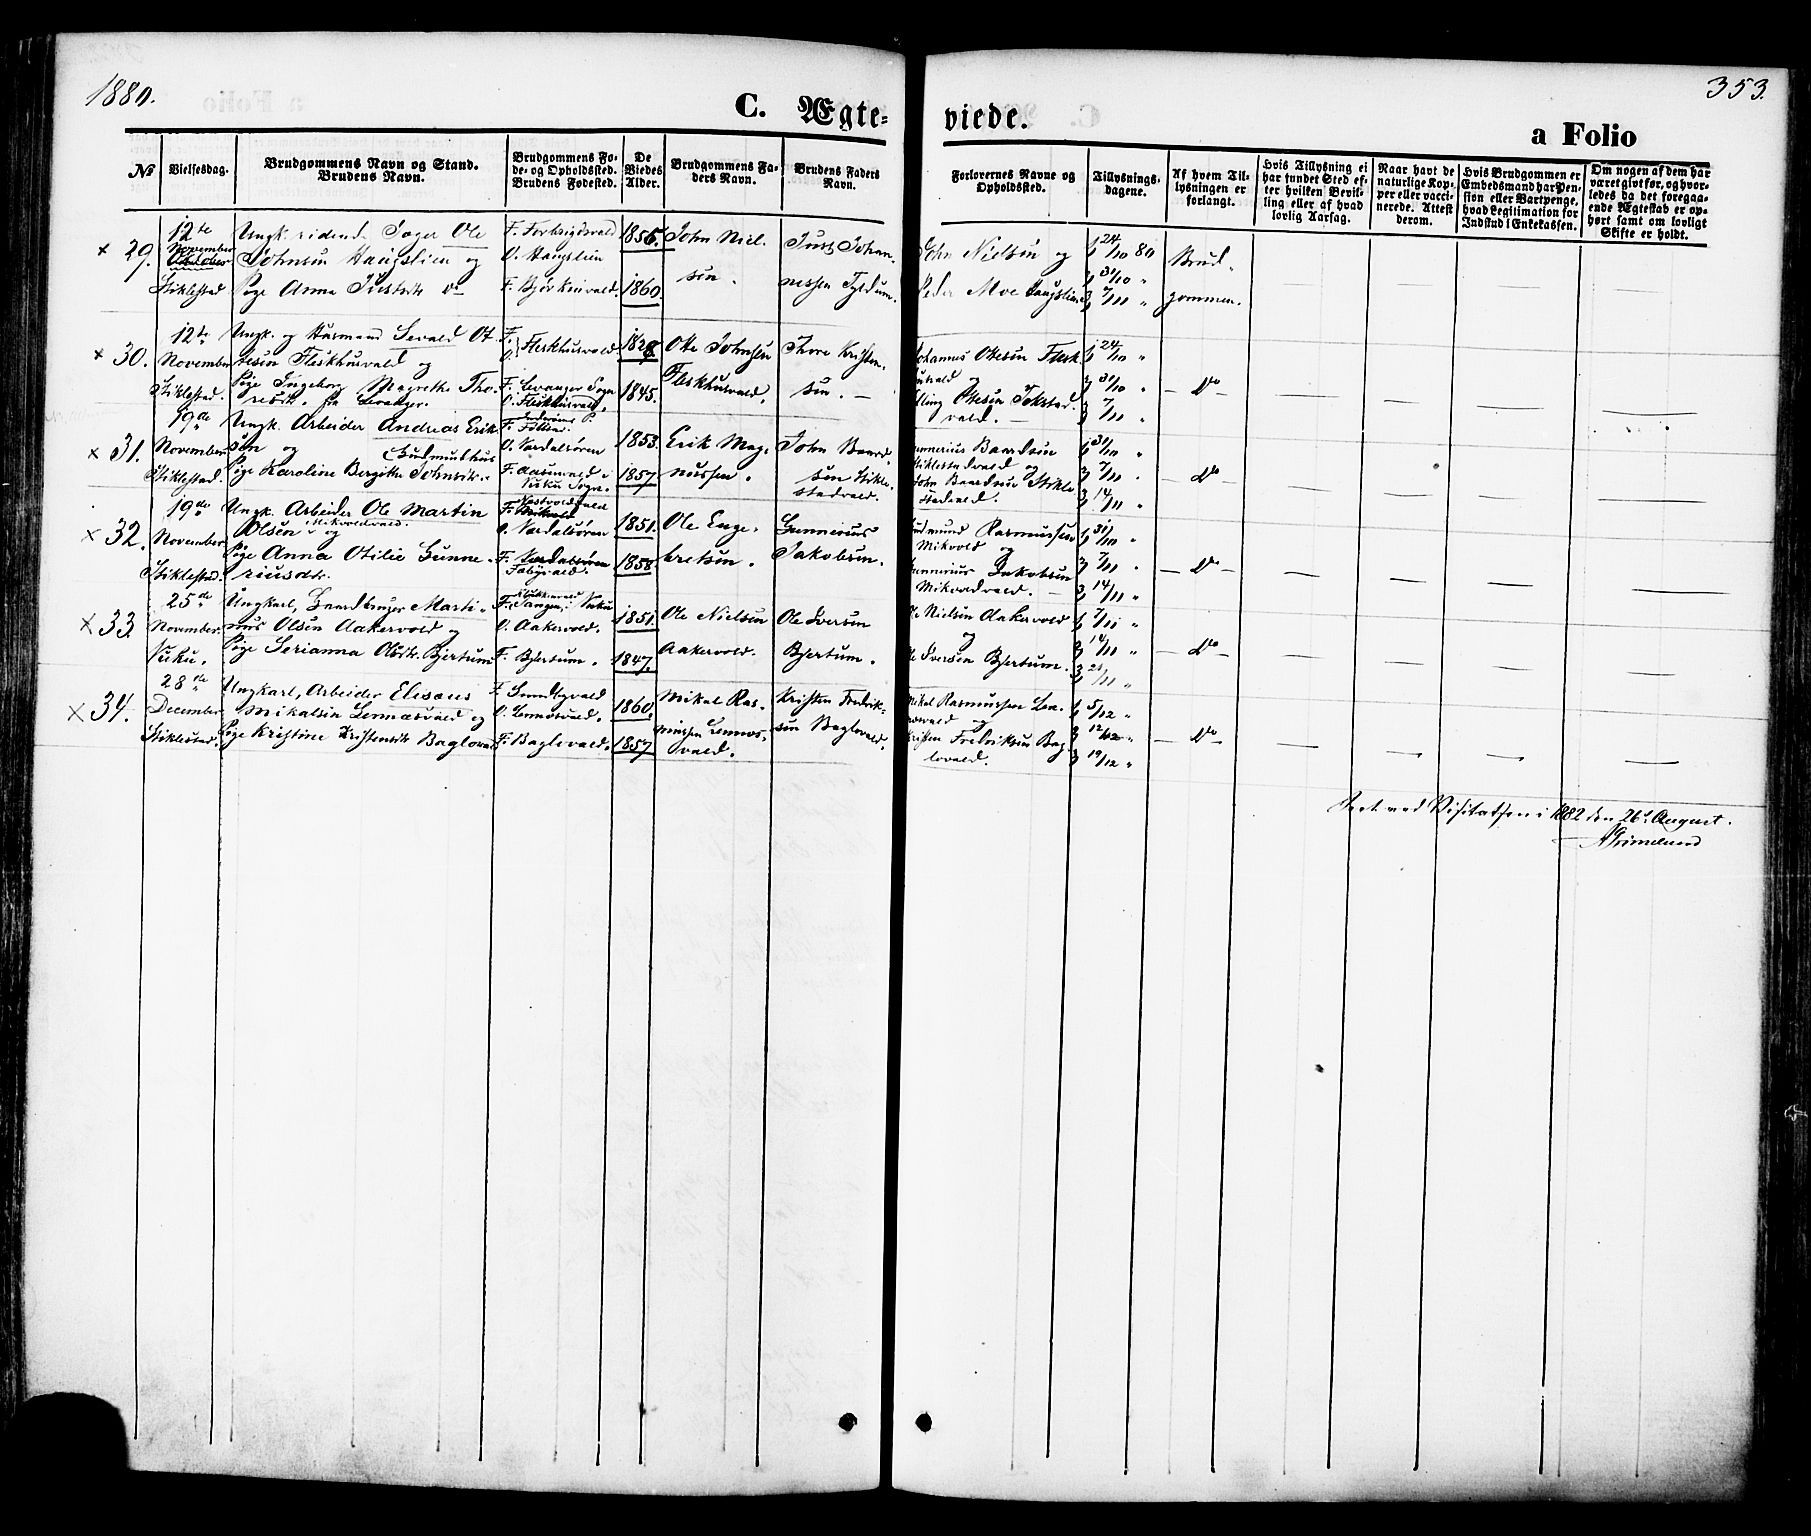 1880.
353.
C. Ægte-
viede.
a Folio
No
Vielsesdag.
Brudgommens Navn og Stand.
Brudens Navn.
Brudgommens Fø-
de- og Opholdssted.
Brudens Fødested.
De
Viedes
Alder.
Brudgommens Fa-
ders Navn.
Brudens Faders
Navn.
Forlovernes Navne og
Opholdsted.
Tillysnings-
dagene.
Af hvem Til-
lysningen er
forlangt.
Hvis Tillysning ei
har fundet Sted ef-
ter hvilken Bevil-
ling eller af hvad
lovlig Aarsag.
Naar havt de
naturlige Kop-
per eller vacci-
nerede. Attest
derom.
Hvis Brudgommen er
Embedsmand har Pen-
sion eller Vartpenge,
hvad Legitimation for
Indskud i Enkekassen.
Om nogen af dem har
været givt før, og hvor-
ledes da det foregaa-
ende Ægteskab er op-
hørt samt om lovligt
Skifte er holdt.
× 29.
12te
November
Oktober
Stiklestad
Ungk. ridend. Jæger Ole
Johnsen Haugslien og
Pige Anna Justsdtr do
F. Forbrigdsvald
O. Haugslien
F. Bjørkenvald.
1856.
1860.
John Niel-
sen.
Just Johan-
nessen Tyldum.
John Nielsen og
Peder Moe Haugslien
1 24/10 80
2 31/10 "
3 7/11 "
Brud-
gommen.
× 30.
12te
November
Stiklestad.
Ungk. og Husmand Sevald Ot-
tesen Fleskhusvald og
Pige Ingeborg Magrethe Tho-
resdtr. fra Levanger.
F.
O. Fleskhusvald
F. Levanger Sogn
O. Fleskhusvald.
1829.
1845.
Otte Johnsen
Fleskhusvald.
Thore Kristen-
sen. —
Johannes Ottesen Flesk-
husvald og
Elling Ottesen Tokstad-
vald. —
1 24/10 "
2 31/10 "
3 7/11 "
— Do —
× 31.
19de
November
Stiklestad.
Ungk. Arbeider Andreas Erik-
sen og
Gudmulhus
Pige Karoline Bergitte Johnsdtr. -
F.
O. Værdalsøren
F. Aasenvald i
Vuku Sogn.
1853.
1857.
Erik Mag-
nussen.
John Baard-
sen Stikle-
stadvald.
Gunnerius Baardsen
Stiklestadvald og
John Baardsen Stikle-
stadvald.
1 31/10 "
2 7/11 "
3 14/11 "
— Do —
× 32.
19de
November
Stiklestad.
Ungk. Arbeider Ole Martin
Olsen Mikvoldvald. og
Pige Anna Otilie Gunne-
riusdtr.
F. Mikvold
O. Værdalsøren
F. Værdalsøren
1851.
1858.
Ole Enge-
bretsen.
Gunnerius
Jakobsen.
Gudmund Rasmussen
Mikvold og
Gunnerius Jakobsen
Mikvoldvald. —
1 31/10 "
2 7/11 "
3 14/11 "
— Do —
× 33.
25de
November
Vuku.
Ungkarl, Gaardbruger Marti-
nus Olsen Aakervold og
Pige Serianna Olsdtr. Bjertum
O. Aakervold.
F. Bjertum.
1851.
1847.
Ole Nielsen
Aakervold.
Ole Iversen
Bjertum.
Ole Nielsen Aakervold
og
Ole Iversen Bjertum.
1 7/11 "
2 14/11 "
3 21/11 "
— Do —
× 34.
28de
December
Stiklestad.
Ungkarl, Arbeider Elisæus
Mikalsen Lennæsvald og
Pige Kristine Kristensdtr Baglovald
F. Sundbyvald
O. Lennæsvald.
F. Baglovald.
1860.
1857.
Mikal Ras-
mussen Lennæs-
vald.
Kristen Fredrik-
sen Baglovald.
Mikal Rasmussen Len-
næsvald og
Kristen Fredriksen Bag-
lovald.
1 5/12 "
2 12/12 "
3 19/12 "
— Do —
Seet ved Visitatsen i 1882 den 26d August.
AGrimelund